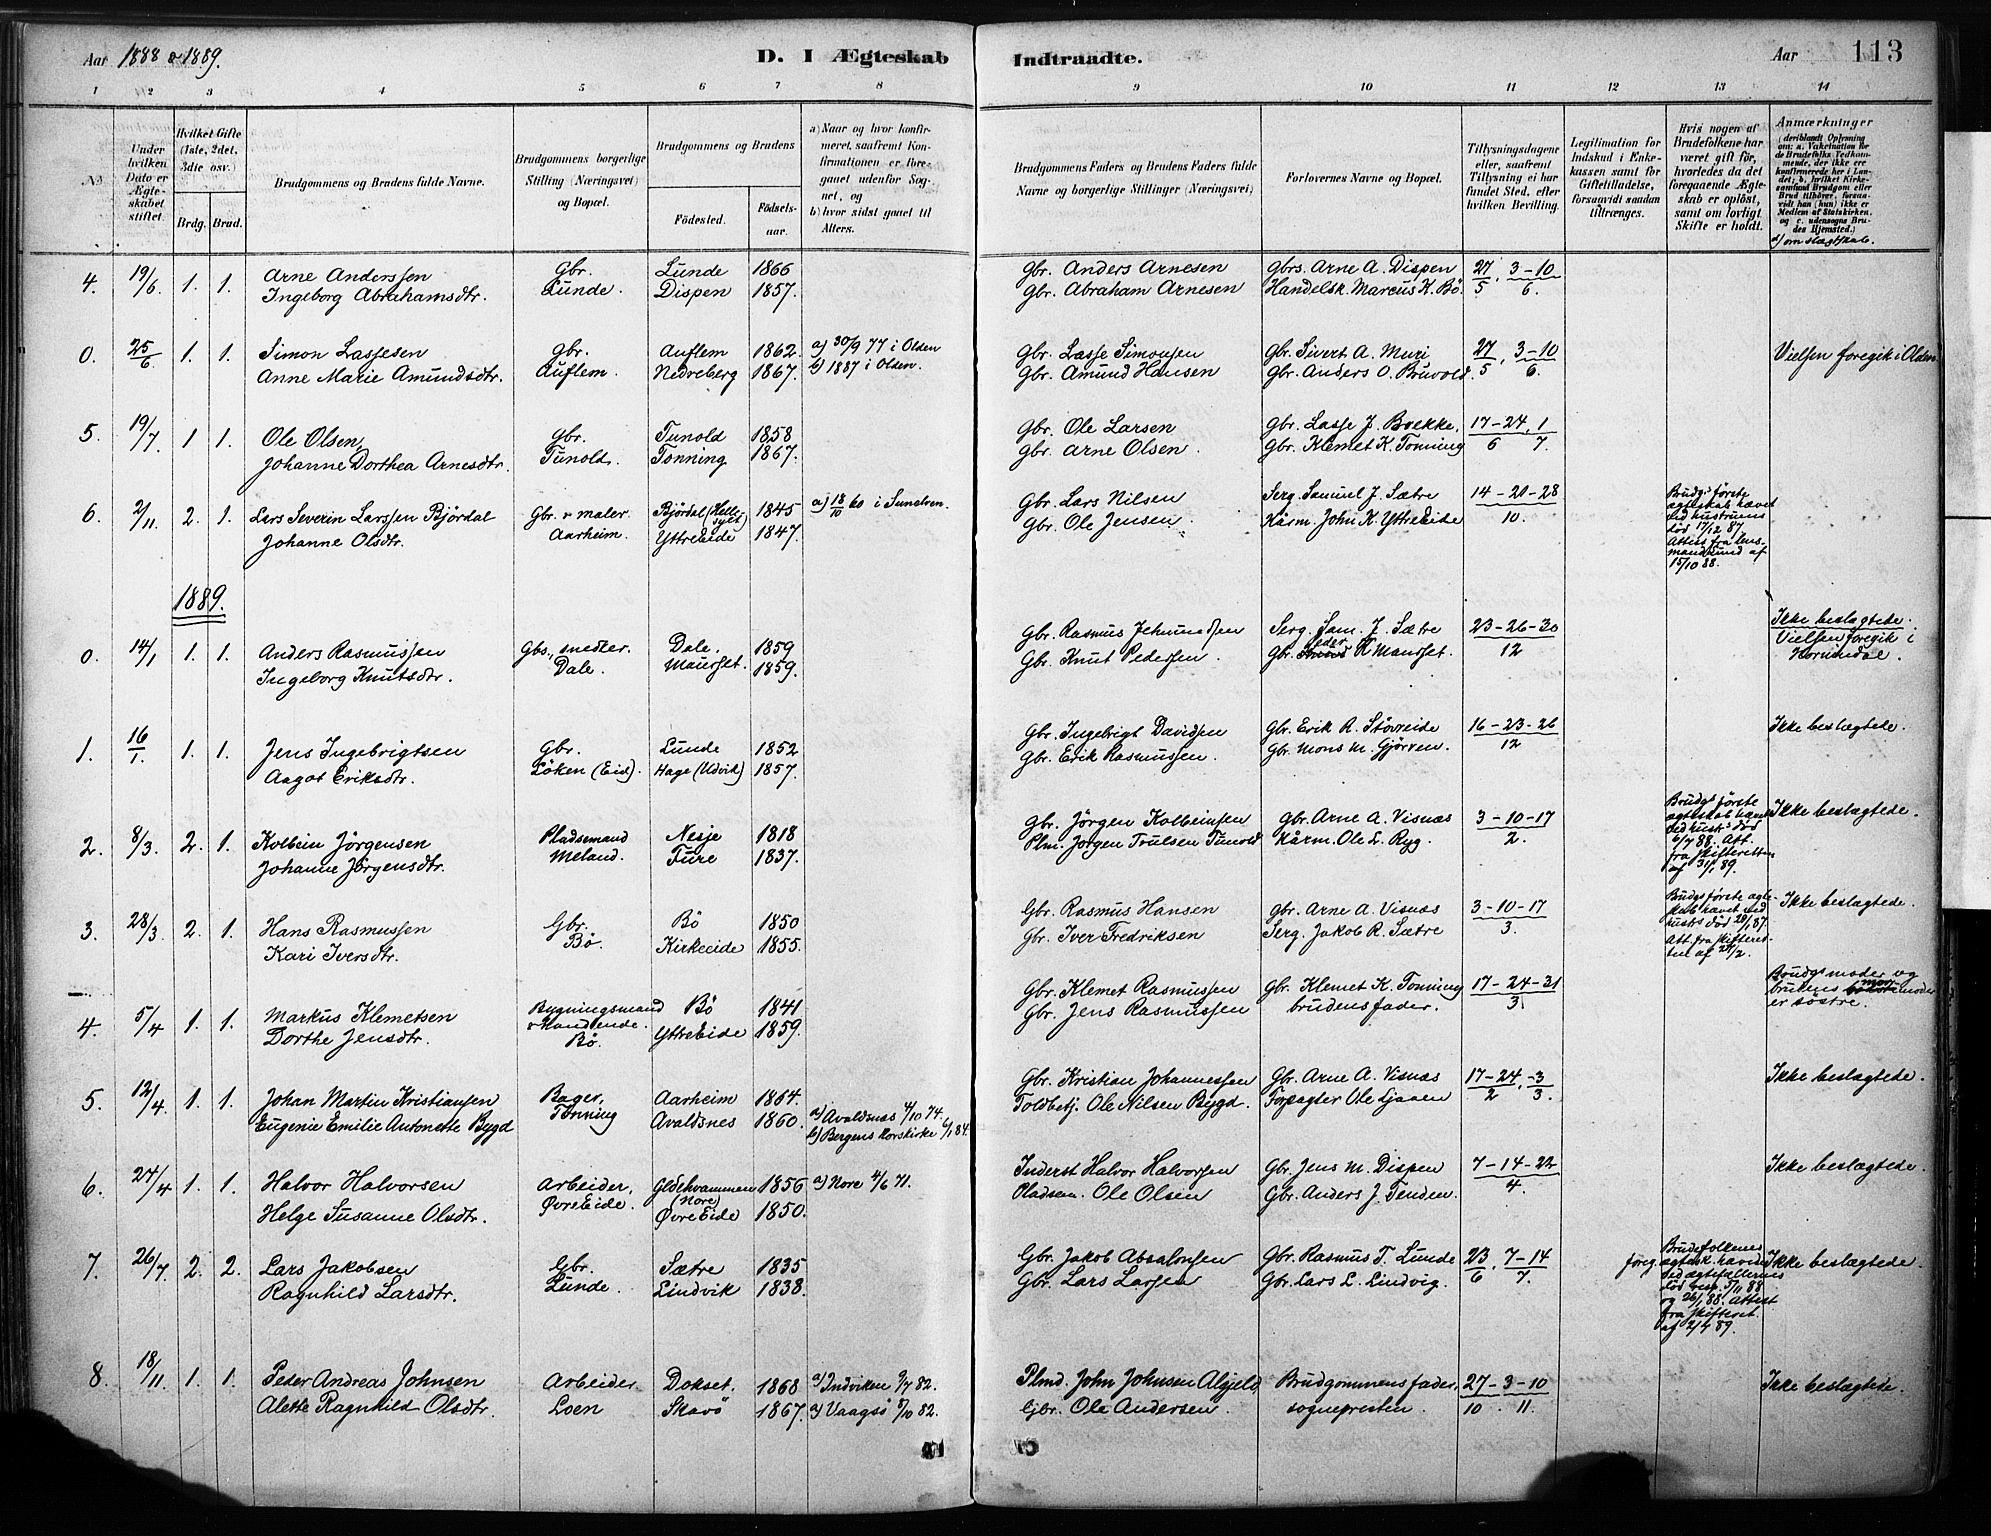 Aar 1888 o 1889.
D. I Ægteskab Indtraadte.
Aar 113
1 2 3 4 5 6 7 8 9 10 11 12 13 14
No.
Under hvilken Dato er Ægteskabet stiftet.
Hvilket Gifte (1ste, 2det, 3die osv.)
Brdg. Brud.
Brudgommens og Brudens fulde Navne.
Brudgommens borgerlige Stilling (Næringsvei) og Bopæl.
Brudgommens og Brudens
Födested. Födselsaar.
a) Naar og hvor konfirmeret, saafremt Konfirmationen er foregaaet udenfor Sognet, og
b) hvor sidst gaaet til Alters.
Brudgommens Faders og Brudens Faders fulde Navne og borgerlige Stillinger (Næringsvei)
Forlovernes Navne og Bopæl.
Tillysningsdagene eller, saafremt Tillysning ei har fundet Sted, efter hvilken Bevilling.
Legitimation for Indskud i Enkekassen samt for Giftetilladelse, forsaavidt saadan tiltrænges.
Hvis nogen af Brudefolkene har været gift för, hvorledes da det foregaaende Ægteskab er oplöst, samt om lovligt Skifte er holdt.
Anmærkninger (deriblandt Oplysning om: a. Vakcination for de Brudefolks Vedkommende, der ikke ere konfirmerede her i Landet; b. hvilket Kirkesamfund Brudgom eller Brud tilhörer, forsaavidt han (hun) ikke er Medlem af Statskirken, og c. udensogns Brudes Hjemsted.)
d) om slægtskab.
4. 19/6 1. 1. Arne Anderssen Gbr. Lunde 1866 Gbr. Anders Arnesen Gbrs. Arne A. Dispen 27/5, 3-10/6.
Ingeborg Abrahamsdtr. Lunde. Dispen 1857. Gbr. Abraham Arnesen Handelsk. Marcus K. Bö.
0. 25/6 1. 1. Simon Lassesen Gbr. Auflem 1862. a) 30/9 77 i Olden Gbr. Lasse Simonsen Gbr. Sivert A. Muri 27/5, 3-10/6. Vielsen foregik i Olden
Anne Marie Amundsdtr. Auflem. Nedreberg 1867. b) 1887 i Olden. Gbr. Amund Hansen Gbr. Anders O. Bruvold.
5. 19/7 1 1. Ole Olsen, Gbr. Tunold 1858 Gbr. Ole Larsen Gbr. Lasse J. Brekke, 17-24/6, 1/7.
Johanne Dorthea Arnesdtr. Tunold. Tonning 1867. Gbr. Arne Olsen. Gbr. Klemet K. Tonning
6. 2/11. 2. 1. Lars Severin Larssen Björdal Gbr. & maler Björdal (Hellesylt) 1845 a) 18/10 60 i Sunelven. Gbr. Lars Nilsen Serg. Samuel J. Sætre 14-21-28/10. Brudg's förste ægteskab hævet ved hustruens död 17/12 87. Attest fra lensmand Sund af 15/10 88.
Johanne Olsdtr. Aarheim. YttreEide 1847. Gbr. Ole Jensen. Kårm. John K. YttreEide
1889.
0. 14/1 1. 1. Anders Rasmussen Gbs., medler. Dale, 1859 Gbr. Rasmus Jehmundsen Serg. Sam. J. Sætre 23-26-30/12 Ikke beslægtede.
Ingeborg Knutsdtr. Dale. Maurset. 1859. Gbr. Knut Pedersen. Gbr. Peder K Maurset. Vielsen foregik i Hornindal.
1. 16/1. 1. 1. Jens Ingebrigtsen Gbr. Lunde 1852 Gbr. Ingebrigt Davidsen Gbr. Erik R. Störreide 16-23-26/12 Ikke beslægtede.
Aagot Eriksdtr. Löken (Eid). Hage (Udvik) 1857. Gbr. Erik Rasmussen. Gbr. Mons M. Gjörven.
2. 8/3. 2. 1. Kolbein Jörgensen Pladsemand Nesje 1818 Gbr. Jörgen Kolbeinsen Gbr. Arne A. Visnæs 3-10-17/2. Brudgs förste ægteskab hævet ved husts död 6/7 88. Att. fra skifteretten af 31/1 89. Ikke beslægtede.
Johanne Jörgensdtr. Meland. Fure 1837. Plm. Jörgen Trulsen Tunold Kårm. Ole L. Ryg.
3. 28/3. 2. 1. Hans Rasmussen Gbr. Bö 1850 Gbr. Rasmus Hansen Gbr. Arne A. Visnæs 3-10-17/3. Brudgs förste ægteskab hævet ved husts död 20/1 87. Att. fra skifteretten af 27/2. Ikke beslægtede.
Kari Iversdtr. Bö. Kirkeeide 1855. Gbr. Iver Fredriksen Serg. Jakob R. Sætre
4. 5/4 1. 1. Markus Klemetsen Bygningsmand & Handlende. Bö 1841 Gbr. Klemet Rasmussen Gbr. Klemet K. Tonning 17-24-31/3. Brudgs moder og brudens mormoder er söstre.
Dorthe Jensdtr. Bö. YttreEide 1859. Gbr. Jens Rasmussen brudens fader.
5. 12/4 1. 1. Johan Martin Kristiansen Bager, Aarheim 1864. Gbr. Kristian Johannessen Gbr. Arne A. Visnæs 17-24/2, -3/3. Ikke beslægtede.
Eugenie Emilie Antonette Bygd Tonning Avaldsnes 1860. a) Avaldsnes 4/10 74. b) Bergens Korskirke 6/1 84. Toldbetj. Ole Nilsen Bygd. Forpagter Ole Ljaaen
6. 24/4 1. 1. Halvor Halvorsen Arbeider, Gldehvammen (Nore) 1856 a) Nore 4/6 71. Inderst Halvor Halvorsen Gbr. Jens M. Dispen 7-14-22/4. Ikke beslægtede.
Helge Susanne Olsdtr. ØvreEide. ØvreEide 1850. Pladsem. Ole Olsen Gbr. Anders J. Tenden.
7. 26/7 2. 2. Lars Jakobsen Gbr. Sætre 1835 Gbr. Jakob Absalonsen Gbr. Rasmus T. Lunde 23/6, 7-14/7. Brudefolkenes foreg. ægtesk. hævede ved ægtefællernes död resp. 5/11 88 og 26/1 88. Attest fra skifteret. af 2/4 89. Ikke beslægtede.
Ragnhild Larsdtr. Lunde. Lindvik 1838. Gbr. Lars Larsen Gbr. Lars L. Lindvig.
8. 18/11. 1. 1. Peder Andreas Johnsen Arbeider Dokset. 1868 a) Indviken 9/7 82. Plmd. John Johnsen Alsjeld Brudgommens fader, 27/10 - 3-10/11. Ikke beslægtede.
Alette Ragnhild Olsdtr. Loen Skavö 1867. a) Vaagsö 8/10 82. Gbr. Ole Andersen. sognepresten.